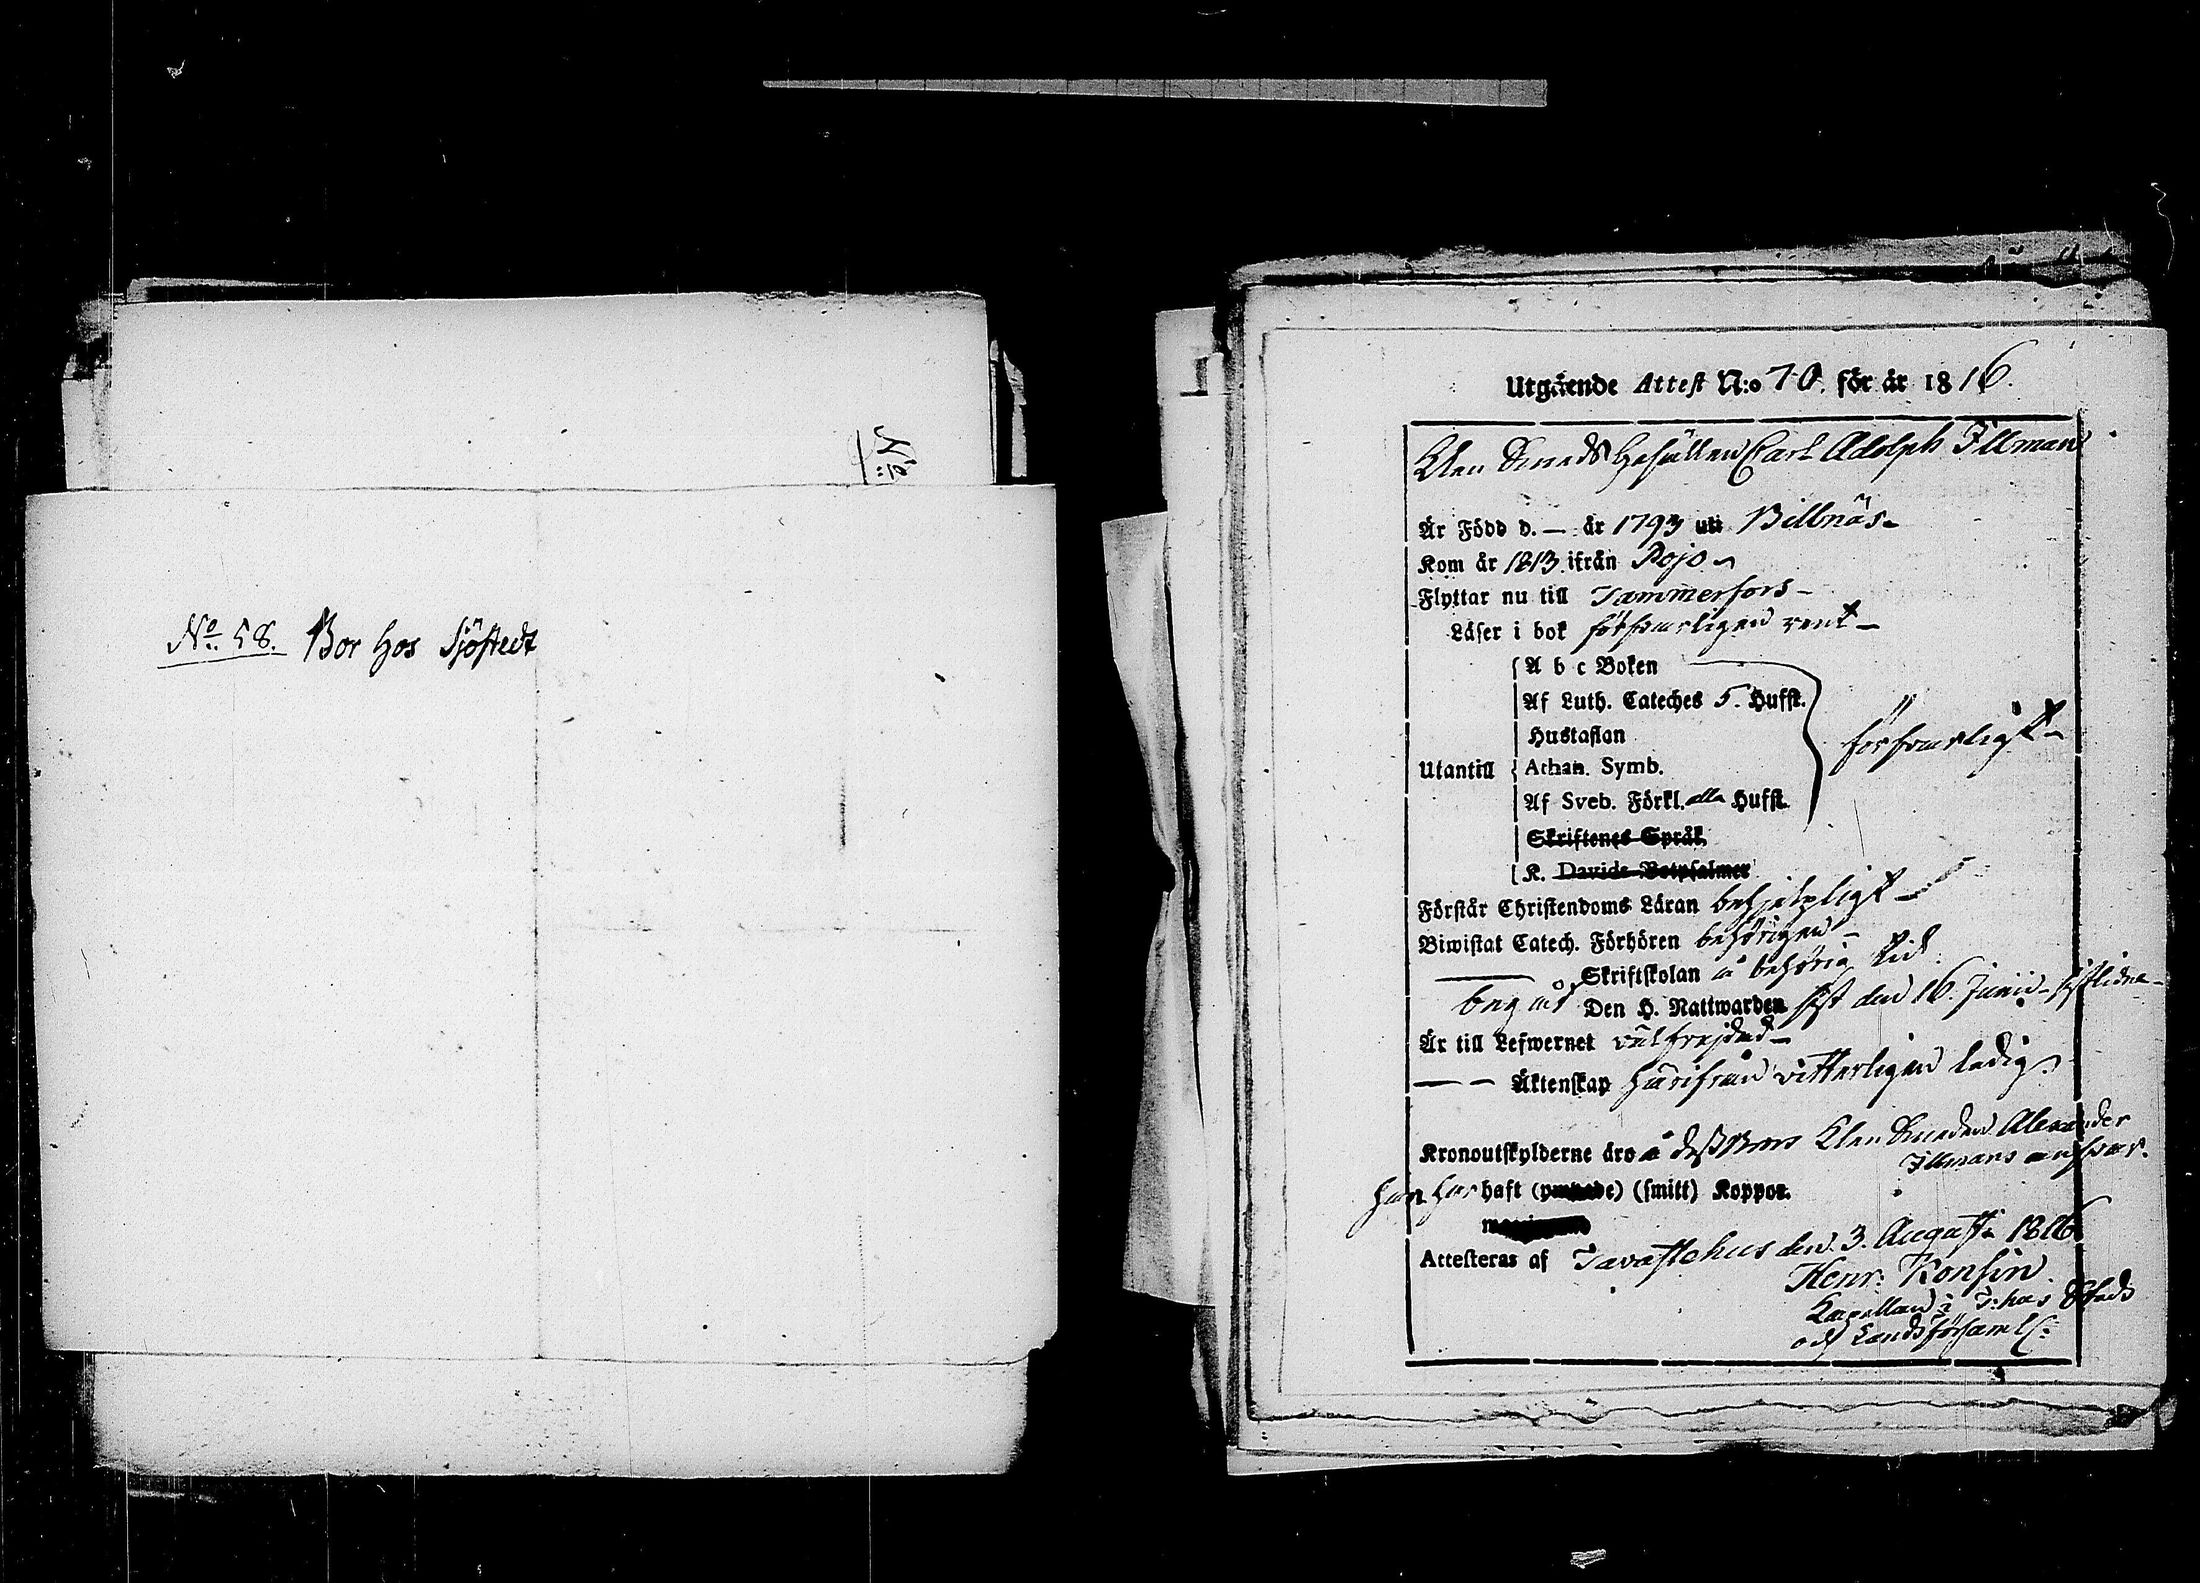 No 58. Bor hos Sjöstedt
Utgående Attest N:o 70. för år 1816.
Klen Smeds Gesällen Carl Adolph Illman
Är Född d. — år 1793 uti Billnäs.
Kom år 1813 ifrån Pojo
Flyttar nu till Tammerfors
Läser i bok försvarligen rent
A b c Boken
Af Luth. Cateches 5. Hufst.
Hustaflan
försvarligt
Utantill
Athan. Symb.
Af Sveb. Förkl. alla Hufst.
Skriftenes Språk
K. Davids Botpsalmer
Förstår Christendoms Läran behjelpligt
Biwistat Catech. Förhören behörigen
— Skriftskolan å behörig tid
begått Den H. Nattwarden sist den 16. Junii sistlidne
Är till Lefwernet välfrejdad
— — Äktenskap härifrån vitterligen ledig.
Kronoutskylderne äro å dess Brors Klen Smeden Alexander
Illmans ansvar.
Han har haft (smitt) Koppor.
Attesteras af Tavastehus den 3. Augusti 1816
Henr: Konsin
Kapellan i T:hus Stads
och Landsförsaml: